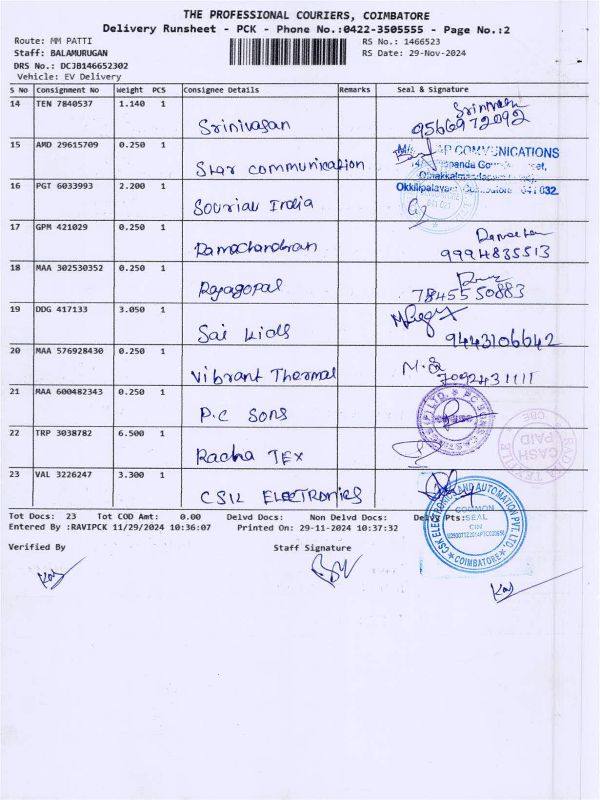 THE PROFESSIONAL COURIERS, COIMBATORE
Delivery Runsheet - PCK - Phone No.:0422-3505555 - Page No.:2
Route: MM PATTI RS No.: 1466523
Staff: BALAMURUGAN RS Date: 29-Nov-2024
DRS No.: DCJB146652302
Vehicle: EV Delivery
S No Consignment No Weight PCS Consignee Details Remarks Seal & Signature
14 TEN 7840537 1.140 1 Srinivasan Srinivasan
9566972092
15 AMD 29615709 0.250 1 Star communication COMMUNICATIONS
16 PGT 6033993 2.200 1 Sourial India
17 GPM 421029 0.250 1 Ramachandran
9994835513
18 MAA 302530352 0.250 1 Rajagopal
7845550883
19 DDG 417133 3.050 1 Sai kids
9443106642
20 MAA 576928430 0.250 1 Vibrant Thermal
7092431111
21 MAA 600482343 0.250 1 P.C Sons
22 TRP 3038782 6.500 1 Radha TEX
CASH PAID
23 VAL 3226247 3.300 1 CSK ELECTRONICS
CSK ELECTRONICS AND AUTOMATION PVT. LTD.
COMMON
SEAL
CIN
COIMBATORE
Tot Docs: 23 Tot COD Amt: 0.00 Delvd Docs: Non Delvd Docs: Delvy Pts:
Entered By :RAVIPCK 11/29/2024 10:36:07 Printed On: 29-11-2024 10:37:32
Verified By Staff Signature